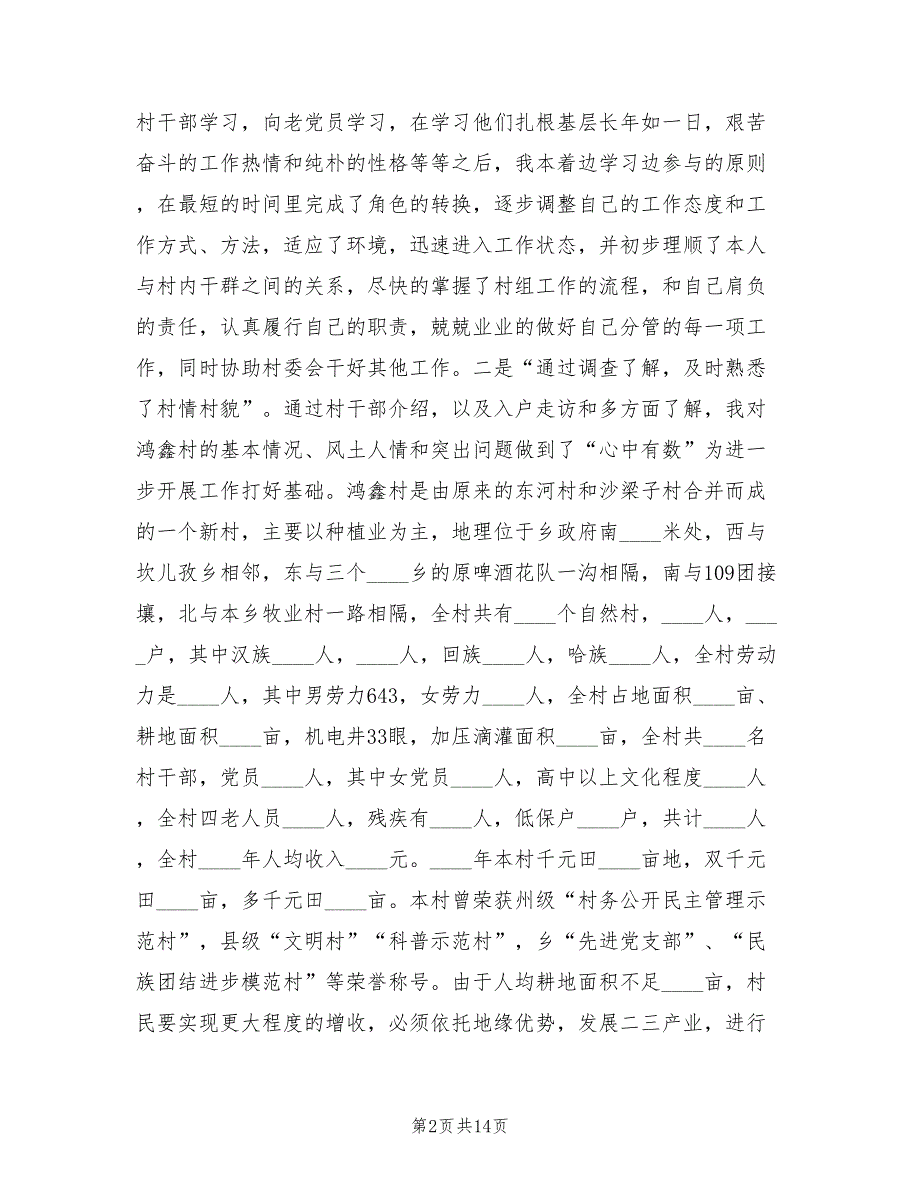 村干部学习，向老党员学习，在学习他们扎根基层长年如一日，艰苦
奋斗的工作热情和纯朴的性格等等之后，我本着边学习边参与的原则
，在最短的时间里完成了角色的转换，逐步调整自己的工作态度和工
作方式、方法，适应了环境，迅速进入工作状态，并初步理顺了本人
与村内干群之间的关系，尽快的掌握了村组工作的流程，和自己肩负
的责任，认真履行自己的职责，兢兢业业的做好自己分管的每一项工
作，同时协助村委会干好其他工作。二是“通过调查了解，及时熟悉
了村情村貌”。通过村干部介绍，以及入户走访和多方面了解，我对
鸿鑫村的基本情况、风土人情和突出问题做到了“心中有数”为进一
步开展工作打好基础。鸿鑫村是由原来的东河村和沙梁子村合并而成
的一个新村，主要以种植业为主，地理位于乡政府南____米处，西与
坎儿孜乡相邻，东与三个____乡的原啤酒花队一沟相隔，南与109团接
壤，北与本乡牧业村一路相隔，全村共有____个自然村，____人，___
_户，其中汉族____人，____人，回族____人，哈族____人，全村劳动
力是____人，其中男劳力643，女劳力____人，全村占地面积____亩、
耕地面积____亩，机电井33眼，加压滴灌面积____亩，全村共____名
村干部，党员____人，其中女党员____人，高中以上文化程度____人
，全村四老人员____人，残疾有____人，低保户____户，共计____人
，全村____年人均收入____元。____年本村千元田____亩地，双千元
田____亩，多千元田____亩。本村曾荣获州级“村务公开民主管理示
范村”，县级“文明村”“科普示范村”，乡“先进党支部”、“民
族团结进步模范村”等荣誉称号。由于人均耕地面积不足____亩，村
民要实现更大程度的增收，必须依托地缘优势，发展二三产业，进行
第2页共14页